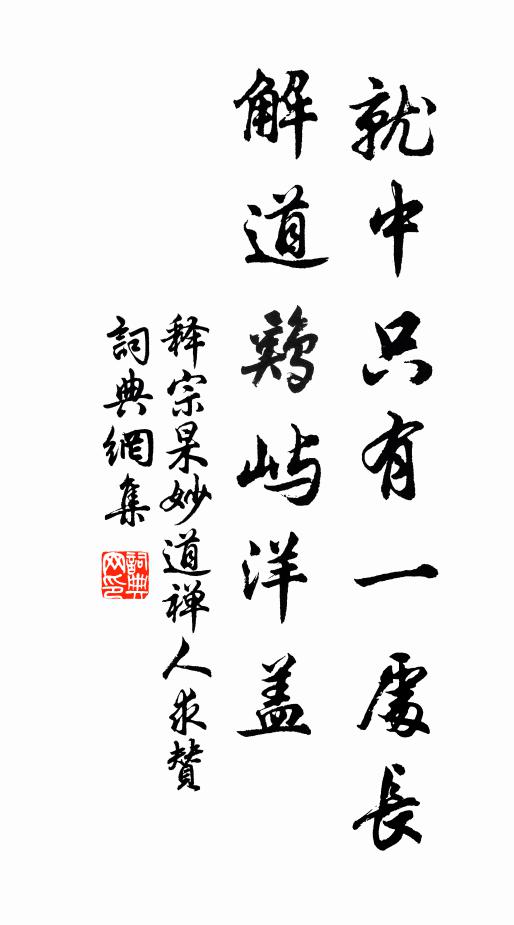 就中只有一處長
解道鷄屿洋盖
释宗杲妙道禅人求贊
詞典網集
詞典網印